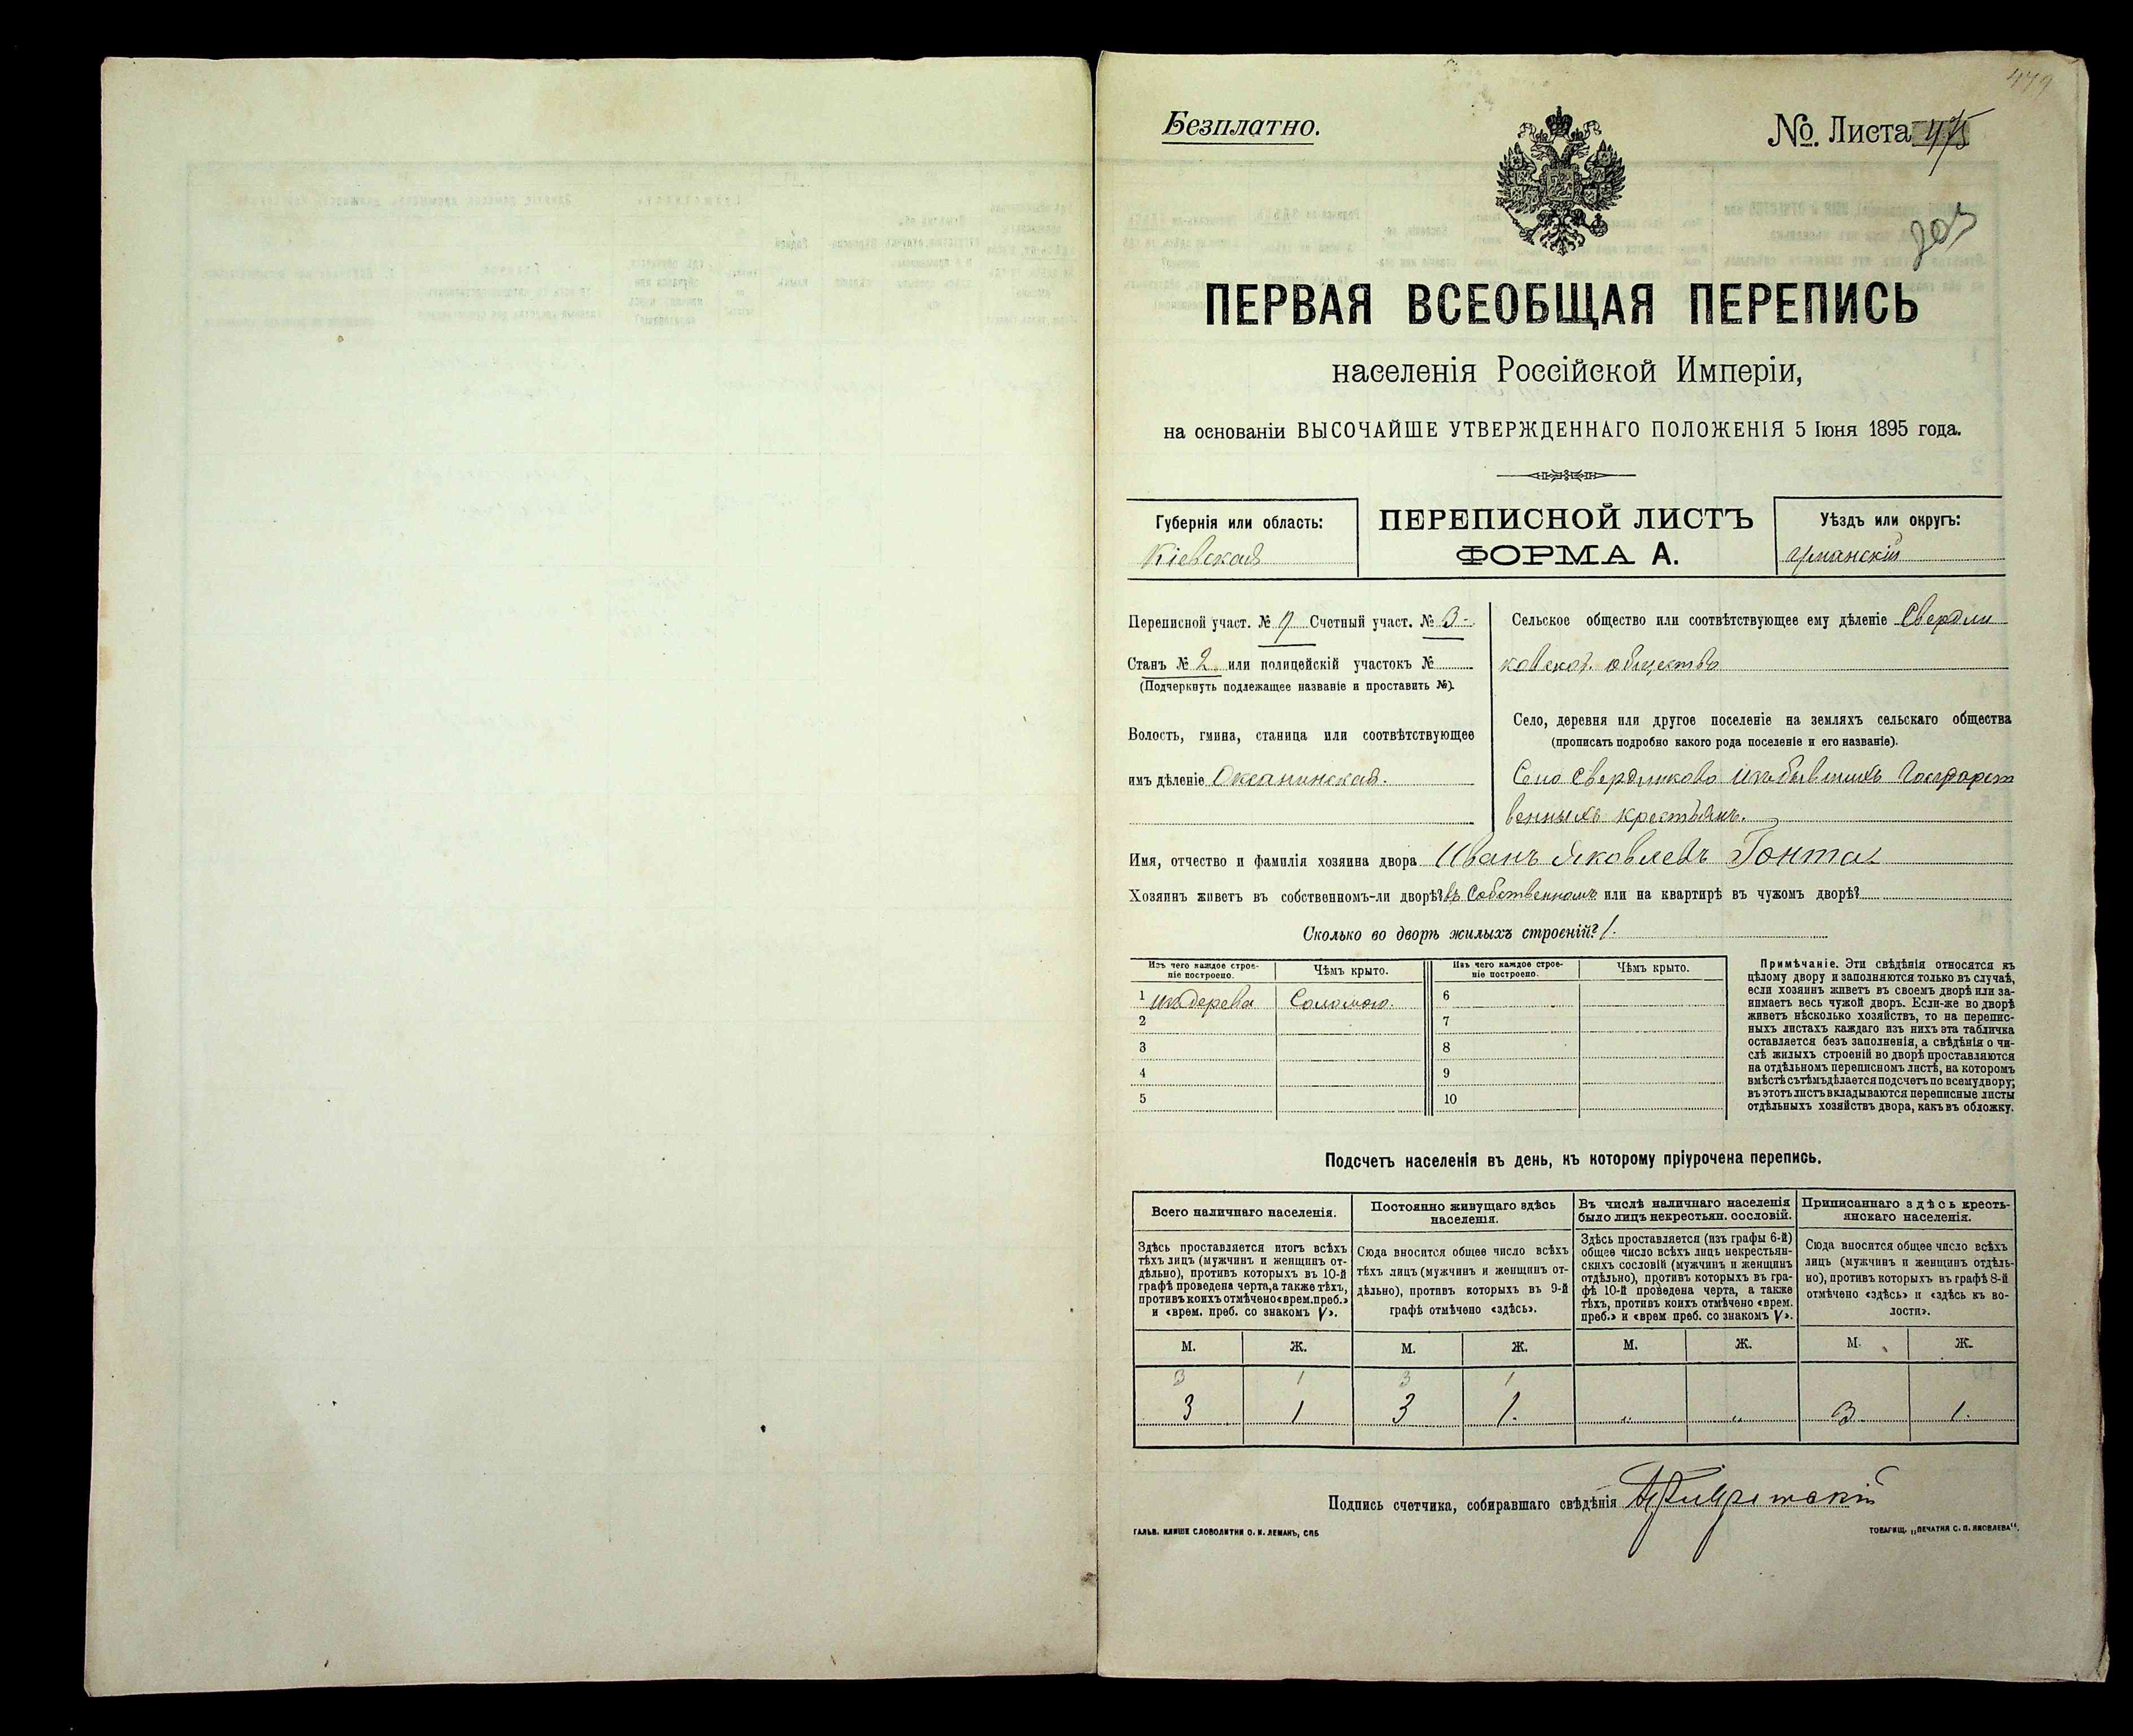 479
Безплатно.
№. Листа 475
ПЕРВАЯ ВСЕОБЩАЯ ПЕРЕПИСЬ
населенія Россійской Имперіи,
на основаніи ВЫСОЧАЙШЕ УТВЕРЖДЕННАГО ПОЛОЖЕНІЯ 5 Іюня 1895 года.
Губернія или область:
Кіевская
ПЕРЕПИСНОЙ ЛИСТЪ
ФОРМА А.
Уѣздъ или округъ:
Уманскій
Переписной участ. № 9 Счетный участ. № 3-
Станъ № 2 или полицейскій участокъ №
(Подчеркнуть подлежащее названіе и проставить №).
Волость, гмина, станица или соотвѣтствующее
имъ дѣленіе Оксанинская.
Сельское общество или соотвѣтствующее ему дѣленіе Свердли
ковское общество
Село, деревня или другое поселеніе на земляхъ сельскаго общества
(прописать подробно какого рода поселеніе и его названіе).
Село Свердликово изъ бывшихъ Государст
венныхъ крестьянъ.
Имя, отчество и фамилія хозяина двора Иванъ Яковлевъ Гонта
Хозяинъ живетъ въ собственномъ-ли дворѣ? въ Собственномъ или на квартирѣ въ чужомъ дворѣ?
Сколько во дворѣ жилыхъ строеній? 1.
Изъ чего каждое строе-
ніе построено.
Чѣмъ крыто.
Изъ чего каждое строе-
ніе построено.
Чѣмъ крыто.
1 изъ дерева Соломою. 6
2 7
3 8
4 9
5 10
Примѣчаніе. Эти свѣдѣнія относятся къ
цѣлому двору и заполняются только въ случаѣ,
если хозяинъ живетъ въ своемъ дворѣ или за-
нимаетъ весь чужой дворъ. Если-же во дворѣ
живетъ нѣсколько хозяйствъ, то на перепис-
ныхъ листахъ каждаго изъ нихъ эта табличка
оставляется безъ заполненія, а свѣдѣнія о чи-
слѣ жилыхъ строеній во дворѣ проставляются
на отдѣльномъ переписномъ листѣ, на которомъ
вмѣстѣ съ тѣмъ дѣлается подсчетъ по всему двору;
въ этотъ листъ вкладываются переписные листы
отдѣльныхъ хозяйствъ двора, какъ въ обложку.
Подсчетъ населенія въ день, къ которому пріурочена перепись.
Всего наличнаго населенія.
Здѣсь проставляется итогъ всѣхъ
тѣхъ лицъ (мужчинъ и женщинъ от-
дѣльно), противъ которыхъ въ 10-й
графѣ проведена черта, а также тѣхъ,
противъ коихъ отмѣчено «врем. преб.»
и «врем. преб. со знакомъ V».
Постоянно живущаго здѣсь
населенія.
Сюда вносится общее число всѣхъ
тѣхъ лицъ (мужчинъ и женщинъ от-
дѣльно), противъ которыхъ въ 9-й
графѣ отмѣчено «здѣсь».
Въ числѣ наличнаго населенія
было лицъ некрестьян. сословій.
Здѣсь проставляется (изъ графы 6-й)
общее число всѣхъ лицъ некрестьян-
скихъ сословій (мужчинъ и женщинъ
отдѣльно), противъ которыхъ въ гра-
фѣ 10-й проведена черта, а также
тѣхъ, противъ коихъ отмѣчено «врем.
преб.» и «врем преб. со знакомъ V».
Приписаннаго здѣсь кресть-
янскаго населенія.
Сюда вносится общее число всѣхъ
лицъ (мужчинъ и женщинъ отдѣль-
но), противъ которыхъ въ графѣ 8-й
отмѣчено «здѣсь» и «здѣсь къ во-
лости».
М. Ж. М. Ж. М. Ж. М. Ж.
3 1 3 1
3 1 3 1. „ „ 3 1.
Подпись счетчика, собиравшаго свѣдѣнія
ГАЛЬВ. КЛИШЕ СЛОВОЛИТНИ О. И. ЛЕМАНЪ, СПБ
ТОВАРИЩ. „ПЕЧАТНЯ С. П. ЯКОВЛЕВА".